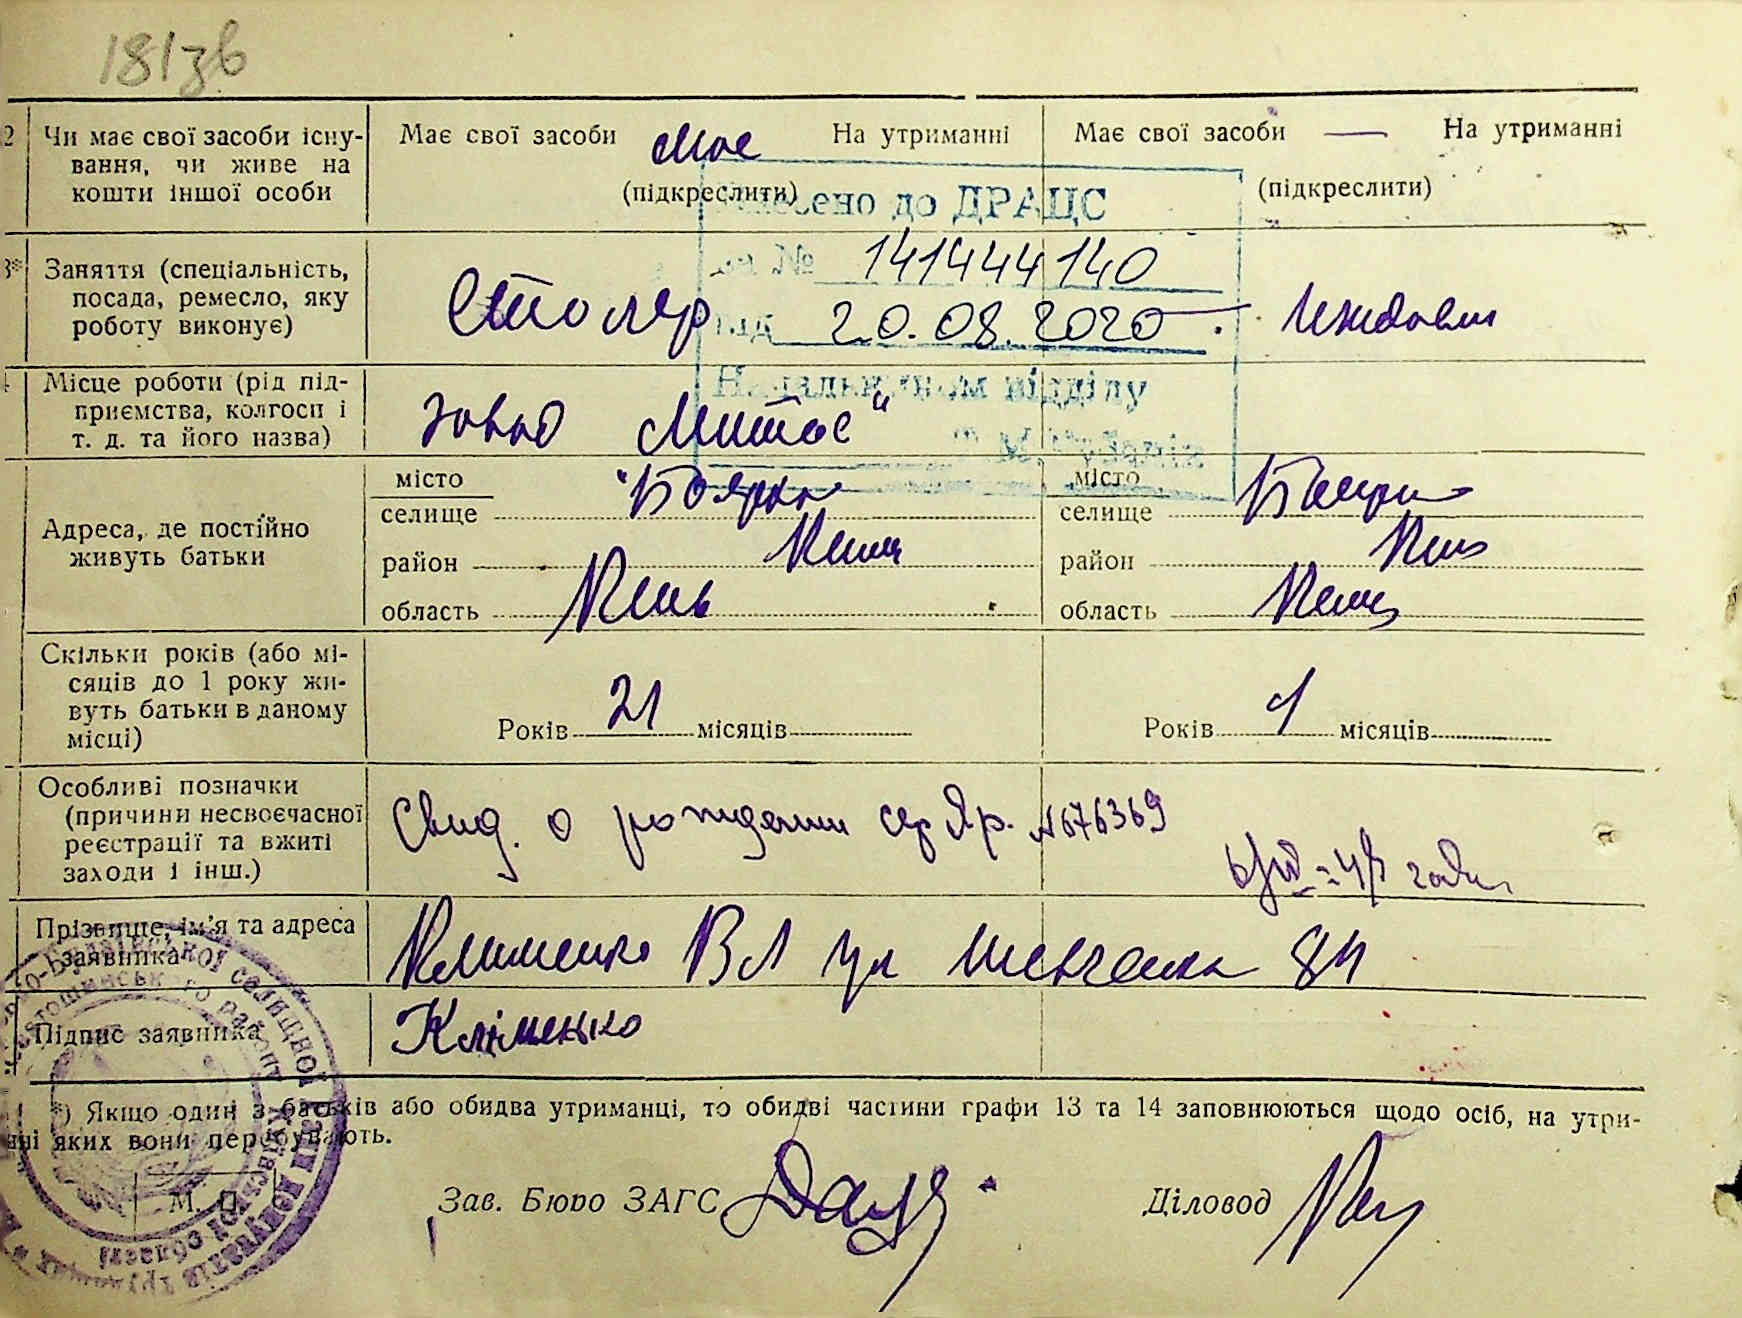 181зв
2 Чи має свої засоби існу-
вання, чи живе на
кошти іншої особи
Має свої засоби має На утриманні
(підкреслити)
Має свої засоби — На утриманні
(підкреслити)
до ДРАЦС
№ 141444140
від 20.08.2020
відділу
3* Заняття (спеціальність,
посада, ремесло, яку
роботу виконує)
Столяр
Иждовен
Місце роботи (рід під-
приємства, колгосп і
т. д. та його назва)
завод
Адреса, де постійно
живуть батьки
місто
селище Боярка
район Киев
область Киев
місто
селище Боярка
район Киев
область Киев
Скільки років (або мі-
сяців до 1 року жи-
вуть батьки в даному
місці)
Років 21 місяців
Років 1 місяців
Особливі позначки
(причини несвоєчасної
реєстрації та вжиті
заходи і інш.)
Свид. о рождении сер Яр. №676369
года
Прізвище, ім'я та адреса
заявника
Клименко ВЛ ул Шевченка 84
Підпис заявника
Кліменко
*) Якщо один з батьків або обидва утриманці, то обидві частини графи 13 та 14 заповнюються щодо осіб, на утри-
нні яких вони перебувають.
М. П.
Зав. Бюро ЗАГС
Діловод
селищної Ради депутатів трудящих
району Київської області